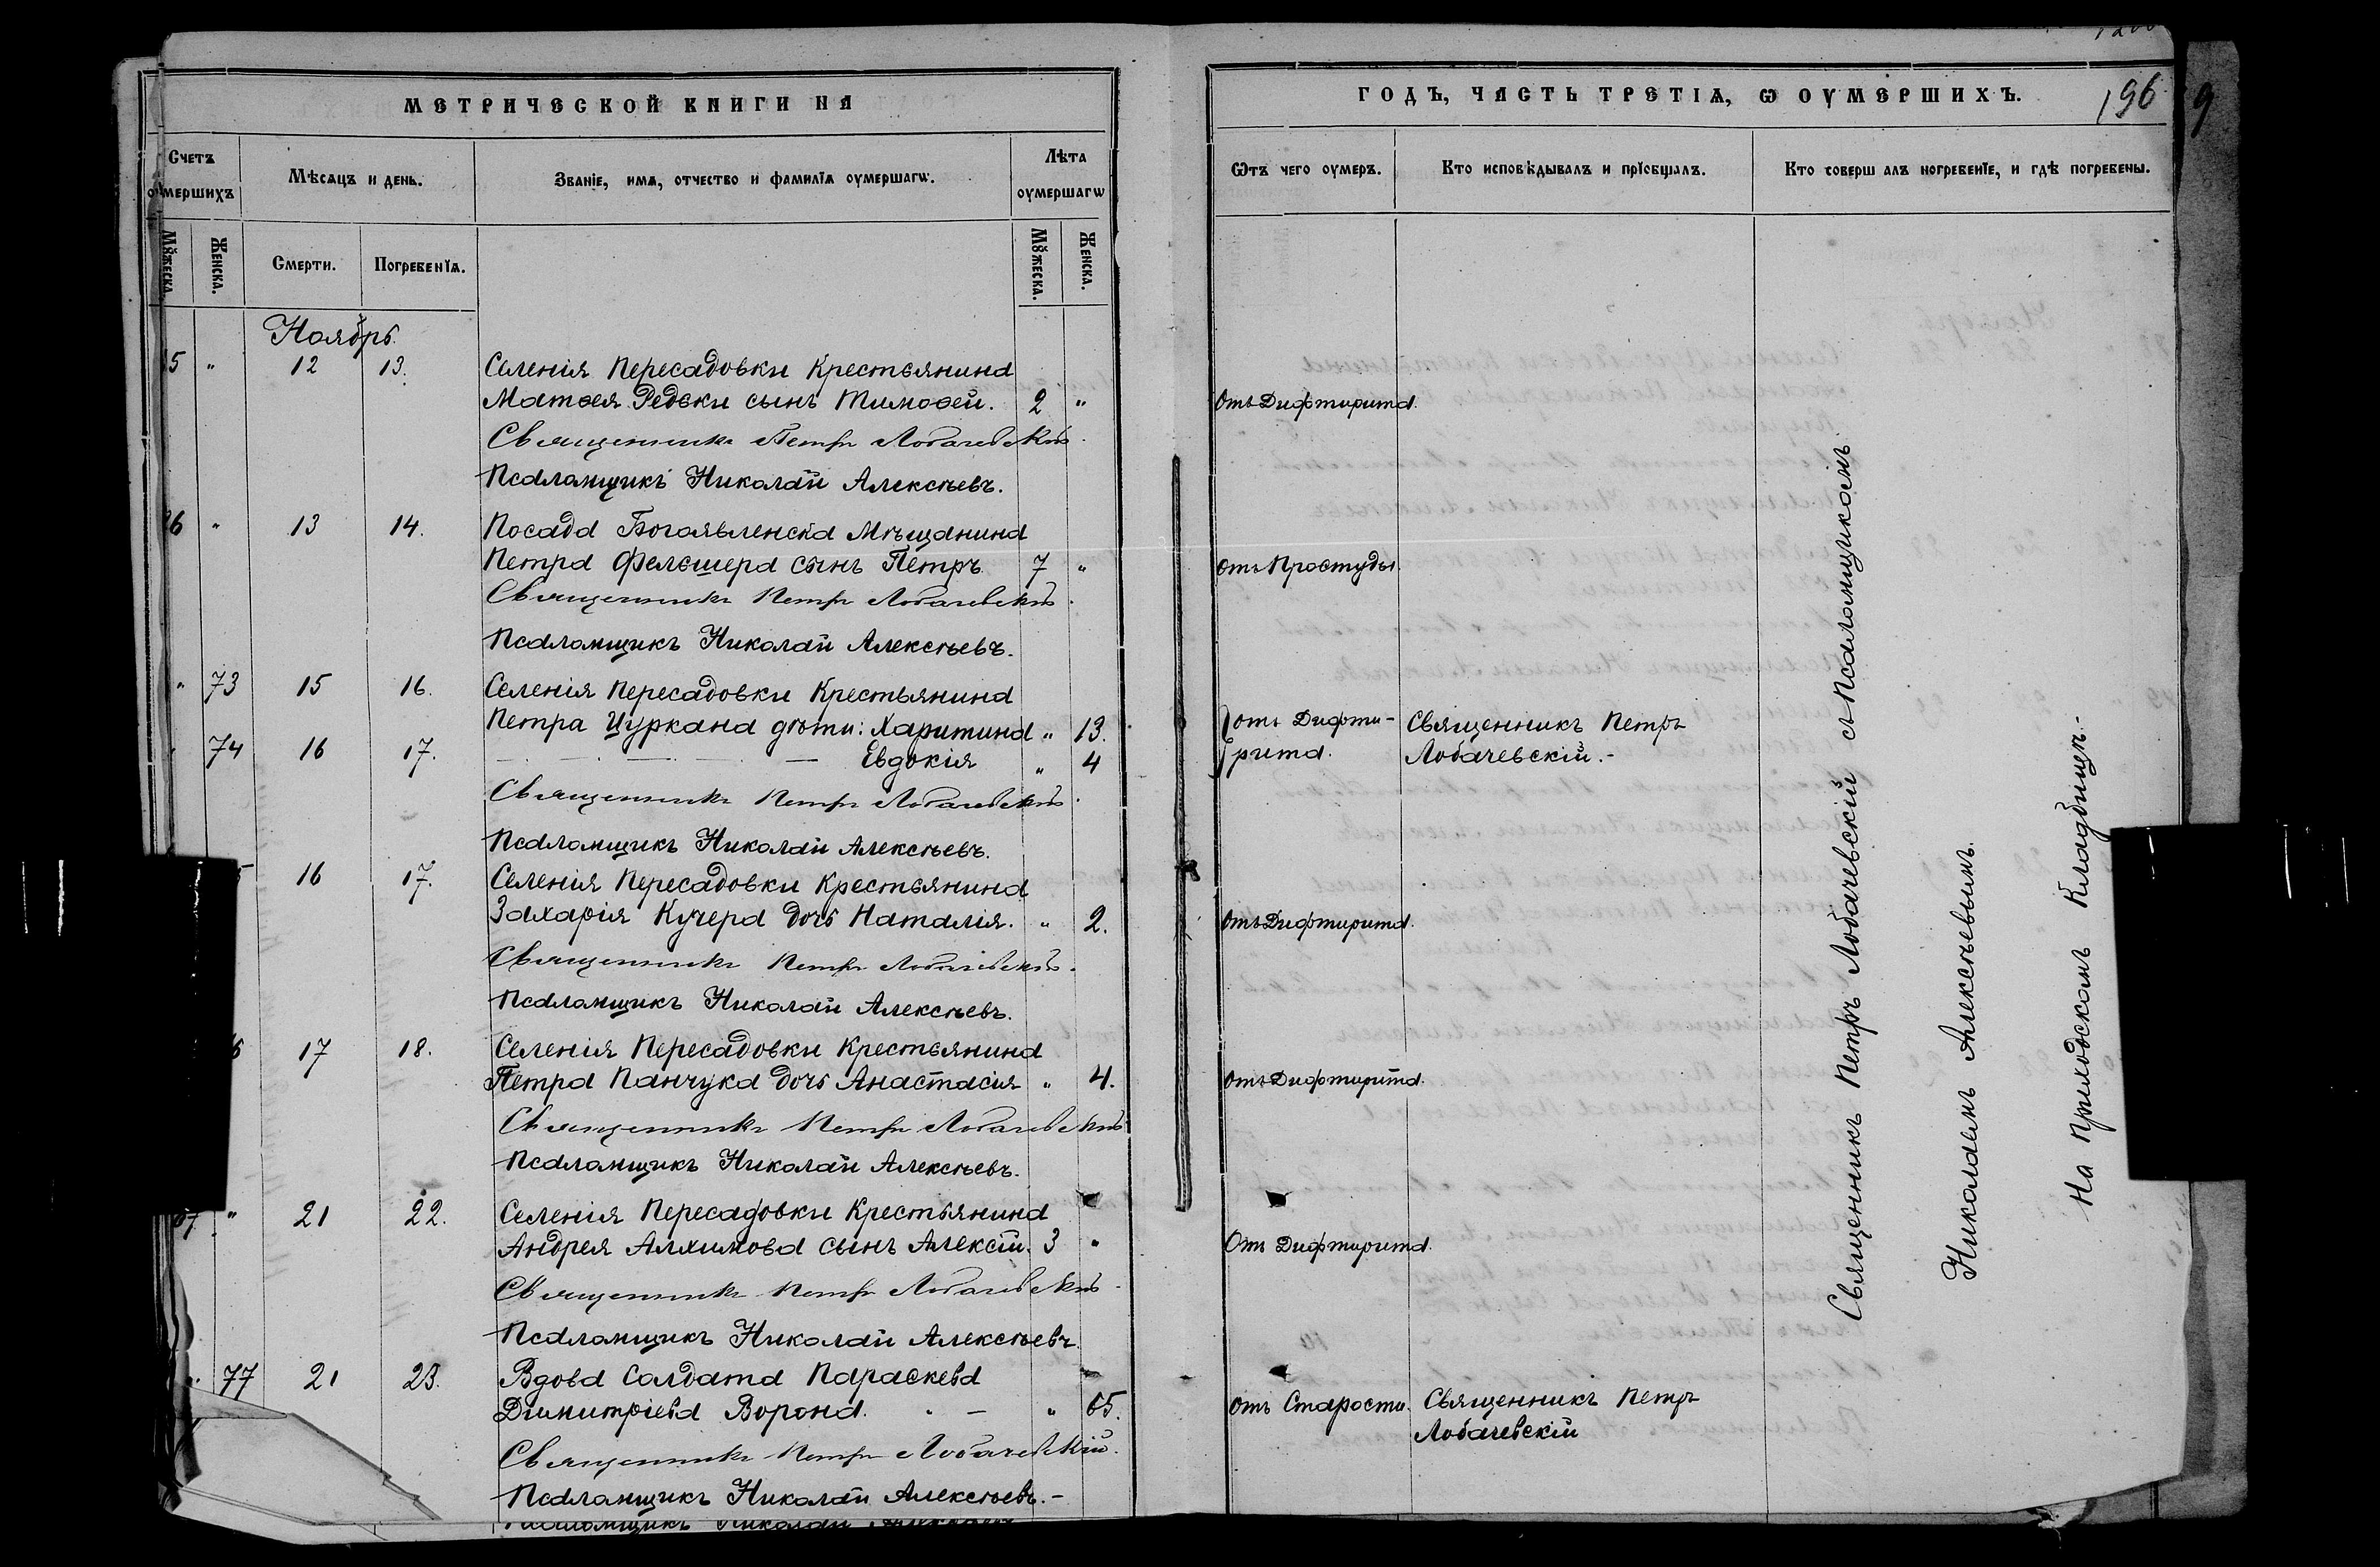 МЕТРИЧЕСКОЙ КНИГИ НА
Счетъ оумершихъ
Мѣсяцъ и день.
Званіе, имя, отчество и фамилія оумершагѡ.
Лѣта оумершагѡ
Мꙋжеска.
Женска.
Смерти.
Погребенїя.
Мꙋжеска.
Женска.
Ноябрь.
12 13. Селенія Пересадовки Крестьянина
Матѳея Редьки сынъ Тимоѳей. 2 "
Священникъ Петръ Лобачевскій.
Псаломщикъ Николай Алексѣевъ.
13 14. Посада Богоявленска Мѣщанина
Петра Фельшера сынъ Петръ 7 "
Священникъ Петръ Лобачевскій.
Псаломщикъ Николай Алексѣевъ.
" 73 15 16. Селенія Пересадовки Крестьянина
Петра Цуркана дѣти: Харитина " 13.
74 16 17. Евдокія " 4
Священникъ Петръ Лобачевскій.
Псаломщикъ Николай Алексѣевъ.
16 17. Селенія Пересадовки Крестьянина
Захарія Кучера дочь Наталія. " 2.
Священникъ Петръ Лобачевскій.
Псаломщикъ Николай Алексѣевъ.
17 18. Селенія Пересадовки Крестьянина
Петра Панчука дочь Анастасія " 4.
Священникъ Петръ Лобачевскій
Псаломщикъ Николай Алексѣевъ.
" 21 22. Селенія Пересадовки Крестьянина
Андрея Алхимова сынъ Алексій. 3 "
Священникъ Петръ Лобачевскій
Псаломщикъ Николай Алексѣевъ
77 21 23. Вдова Солдата Параскева
Димитріева Ворона. " 65.
Священникъ Петръ Лобачевскій.
Псаломщикъ Николай Алексѣевъ.-
ГОДЪ, ЧАСТЬ ТРЕТІЯ, Ѡ ОУМЕРШИХЪ.
196
9
Ѿтъ чего оумеръ.
Кто исповѣдывалъ и прїобщалъ.
Кто соверш алъ погребенїе, и гдѣ погребены.
Отъ Дифтирита.
отъ Простуды.
отъ Дифти- Священникъ Петръ
рита. Лобачевскій.-
Отъ Дифтирита.
Отъ Дифтирита.
Отъ Дифтирита.
отъ Старости. Священникъ Петръ
Лобачевскій
Священникъ Петръ Лобачевскій съ Псаломщикомъ
Николаемъ Алексѣевымъ.
На приходскомъ Кладбищѣ.-